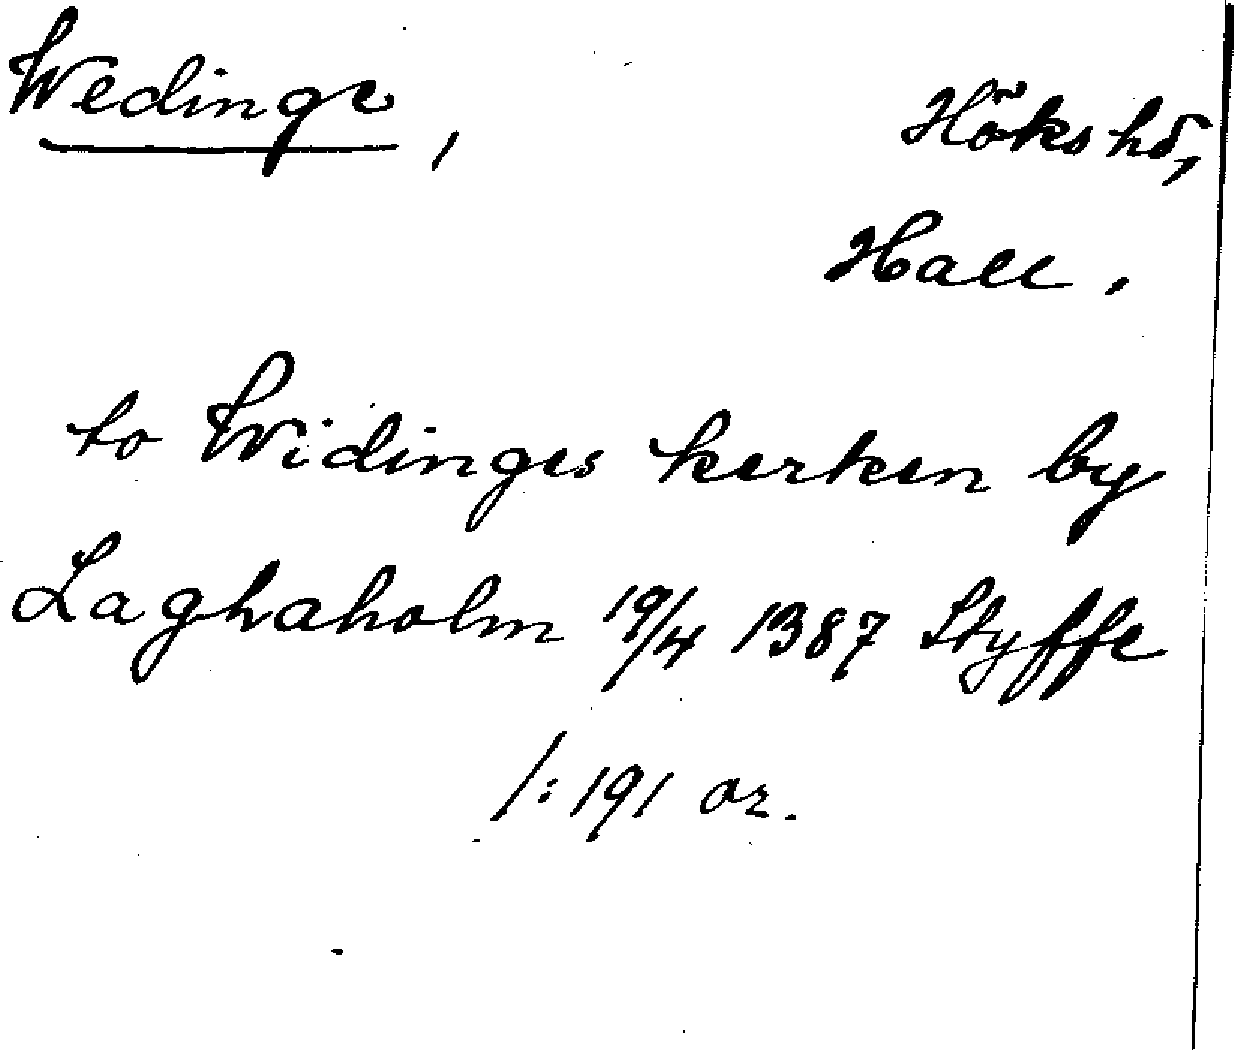 Wedinge,
Höks hd,
Hall.
to Widinges kerken by
Laghaholm 19/4 1387 Styffe
1:191 or.